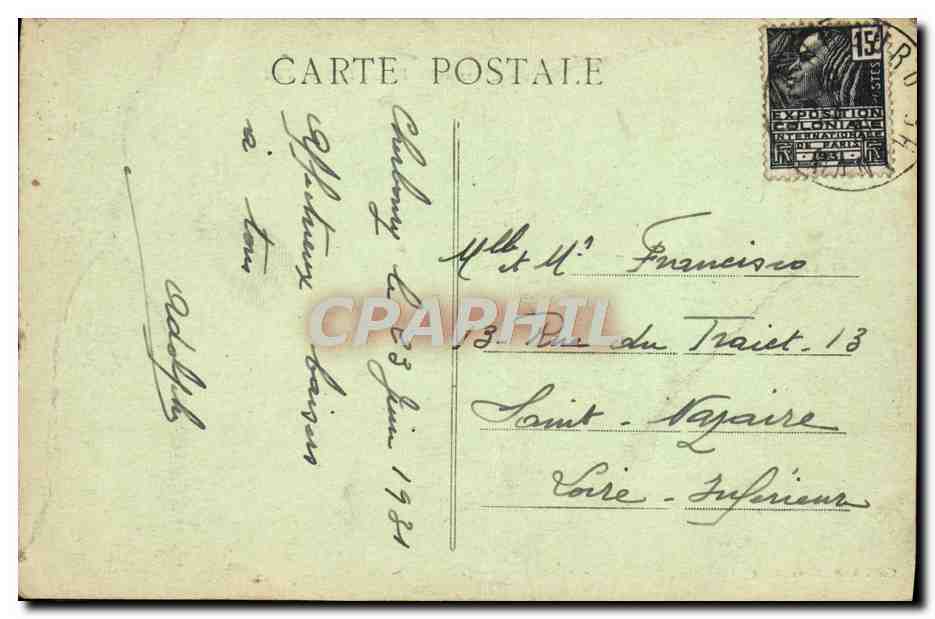 CARTE POSTALE
15c
POSTES
EXPOSITION
COLONIALE
INTERNATIONALE
DE PARIS
1931
Cherbourg le 23 Juin 1931
Affectueux baisers
à tous
Adolphe
Mlle et Mr Francisco
13 Rue du Traict. 13
Saint-Nazaire
Loire-Inférieure
CPAPHIL